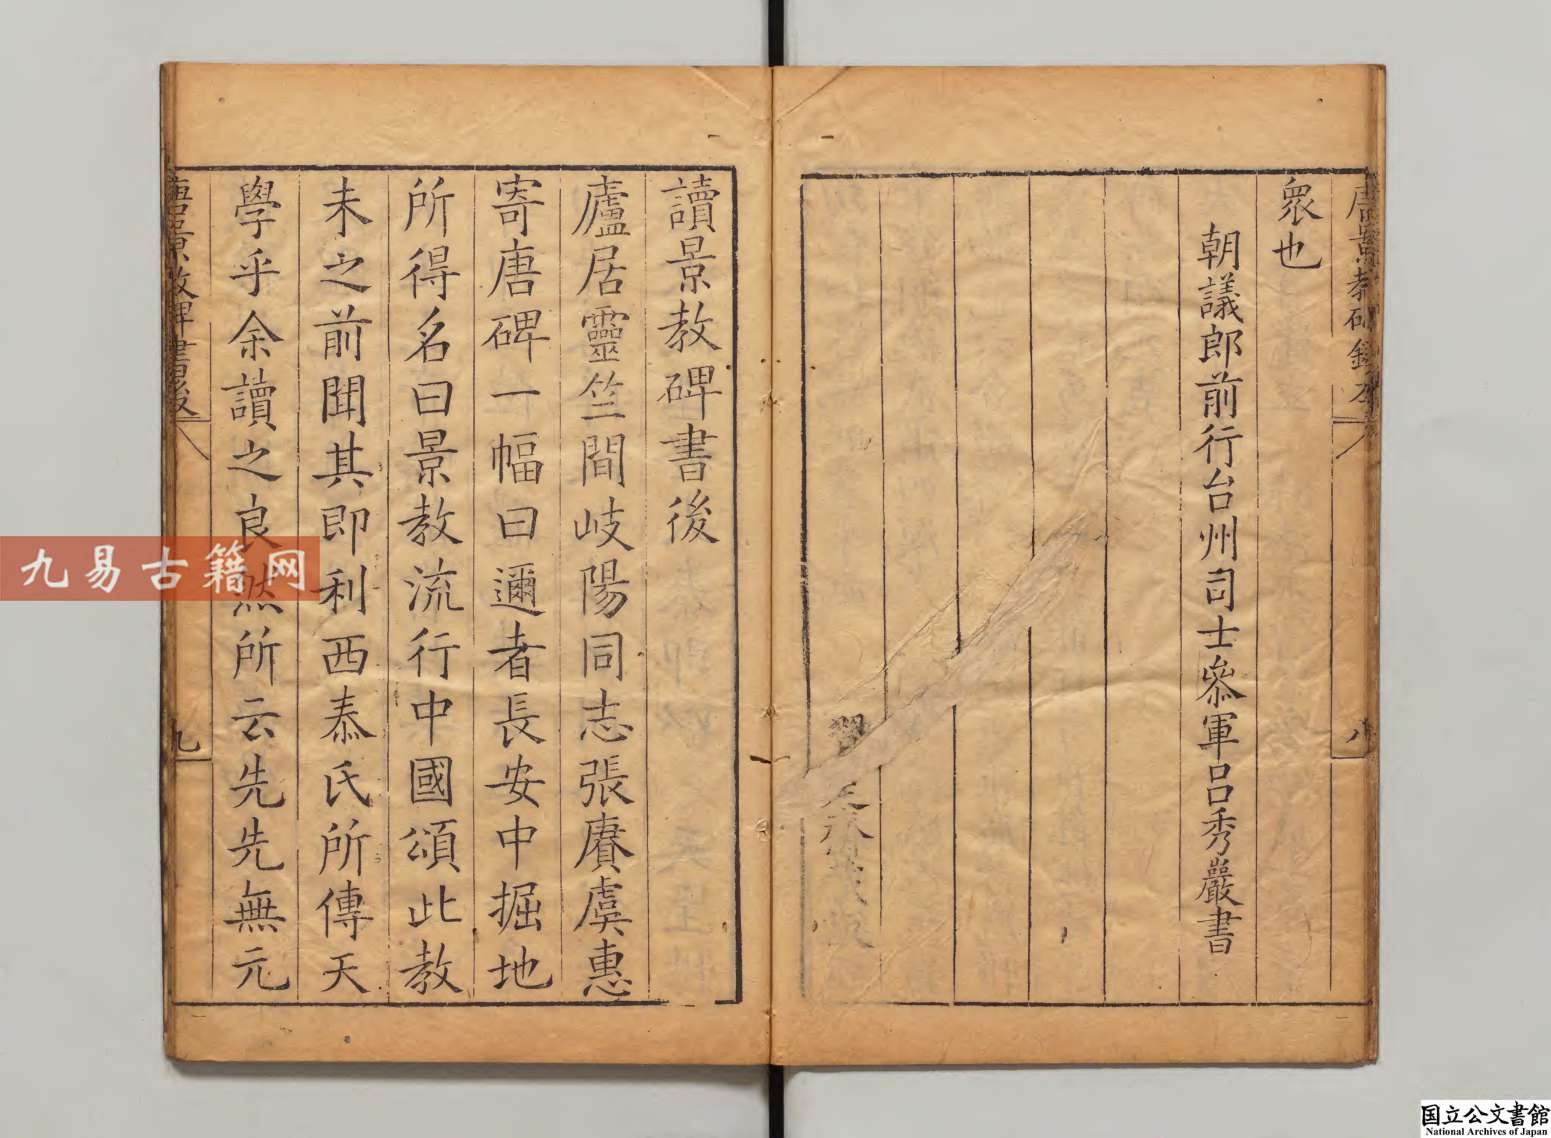 衆也
朝議郎前行台州司士參軍呂秀巖書
八
讀景教碑書後
廬居靈竺間岐陽同志張賡虞惠
寄唐碑一幅曰邇者長安中掘地
所得名曰景教流行中國頌此教
未之前聞其即利西泰氏所傳天
學乎余讀之良然所云先先無元
九
九易古籍网
国立公文書館
National Archives of Japan